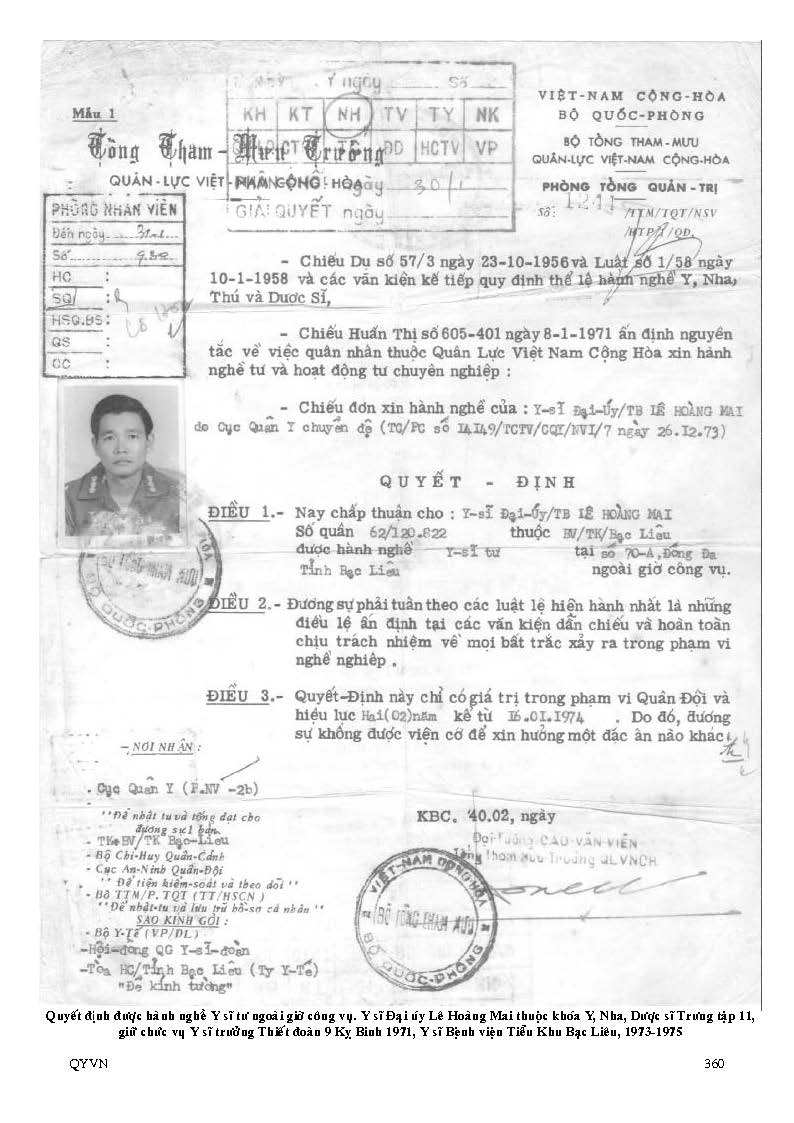 VIỆT-NAM CỘNG-HÒA
BỘ QUỐC-PHÒNG
BỘ TỔNG THAM-MƯU
QUÂN-LỰC VIỆT-NAM CỘNG-HÒA
PHÒNG TỔNG QUẢN-TRỊ
Số: 1241 /TTM/TQT/NSV
/HTPT/QĐ.
Mẫu 1
Tổng Tham-Mưu Trưởng
QUÂN-LỰC VIỆT-NAM CỘNG HÒA
ngày Số
KH KT NH TV TY NK
ĐD HCTV VP
ngày 30/1
GIẢI QUYẾT ngày
PHÒNG NHÂN VIÊN
Đến ngày 31-1
Số 932
HC :
SQ :
HSQ.BS :
QS :
CC :
- Chiếu Dụ số 57/3 ngày 23-10-1956 và Luật số 1/58 ngày
10-1-1958 và các văn kiện kế tiếp quy định thể lệ hành nghề Y, Nha,
Thú và Dược Sĩ,
- Chiếu Huấn Thị số 605-401 ngày 8-1-1971 ấn định nguyên
tắc về việc quân nhân thuộc Quân Lực Việt Nam Cộng Hòa xin hành
nghề tư và hoạt động tư chuyên nghiệp :
- Chiếu đơn xin hành nghề của : Y-sĩ Đại-Úy/TB LÊ HOÀNG MAI
do Cục Quân Y chuyển đệ (TC/PC số 14149/TCTV/CQY/NVI/7 ngày 26.12.73)
QUYẾT - ĐỊNH
ĐIỀU 1.- Nay chấp thuận cho : Y-sĩ Đại-Úy/TB LÊ HOÀNG MAI
Số quân 62/120.822 thuộc BV/TK/Bạc Liêu
được hành nghề Y-sĩ tư tại số 70-A, Đống Đa
Tỉnh Bạc Liêu ngoài giờ công vụ.
ĐIỀU 2.- Đương sự phải tuân theo các luật lệ hiện hành nhất là những
điều lệ ấn định tại các văn kiện dẫn chiếu và hoàn toàn
chịu trách nhiệm về mọi bất trắc xảy ra trong phạm vi
nghề nghiêp .
ĐIỀU 3.- Quyết-Định này chỉ có giá trị trong phạm vi Quân Đội và
hiệu lực Hai(02)năm kể từ 16.01.1974 . Do đó, đương
sự không được viện cớ để xin hưởng một đặc ân nào khác.
- NƠI NHẬN :
- Cục Quân Y (P.NV -2b)
"Để nhật tu và tống đạt cho
đương sự 1 bản.
- TK+BV/TK Bạc-Liêu
- Bộ Chỉ-Huy Quân-Cảnh
- Cục An-Ninh Quân-Đội
" Để tiện kiểm-soát và theo dõi "
- Bộ TTM/P. TQT (TT/HSCN )
"Để nhật-tu và lưu trữ hồ-sơ cá nhân "
SAO KÍNH GỞI :
- Bộ Y-Tế (VP/DL)
-Hội-đồng QG Y-sĩ-đoàn
-Tòa HC/Tỉnh Bạc Liêu (Ty Y-Tế)
"Để kính tường"
KBC. 40.02, ngày
Đại-Tướng CAO VĂN VIÊN
Tổng Tham Mưu Trưởng QLVNCH
VIỆT-NAM CỘNG-HÒA
BỘ TỔNG THAM MƯU
BỘ QUỐC-PHÒNG
BỘ TỔNG THAM MƯU
BỘ QUỐC-PHÒNG
Quyết định được hành nghề Y sĩ tư ngoài giờ công vụ. Y sĩ Đại úy Lê Hoàng Mai thuộc khóa Y, Nha, Dược sĩ Trưng tập 11,
giữ chức vụ Y sĩ trưởng Thiết đoàn 9 Kỵ Binh 1971, Y sĩ Bệnh viện Tiểu Khu Bạc Liêu, 1973-1975
QYVN 360